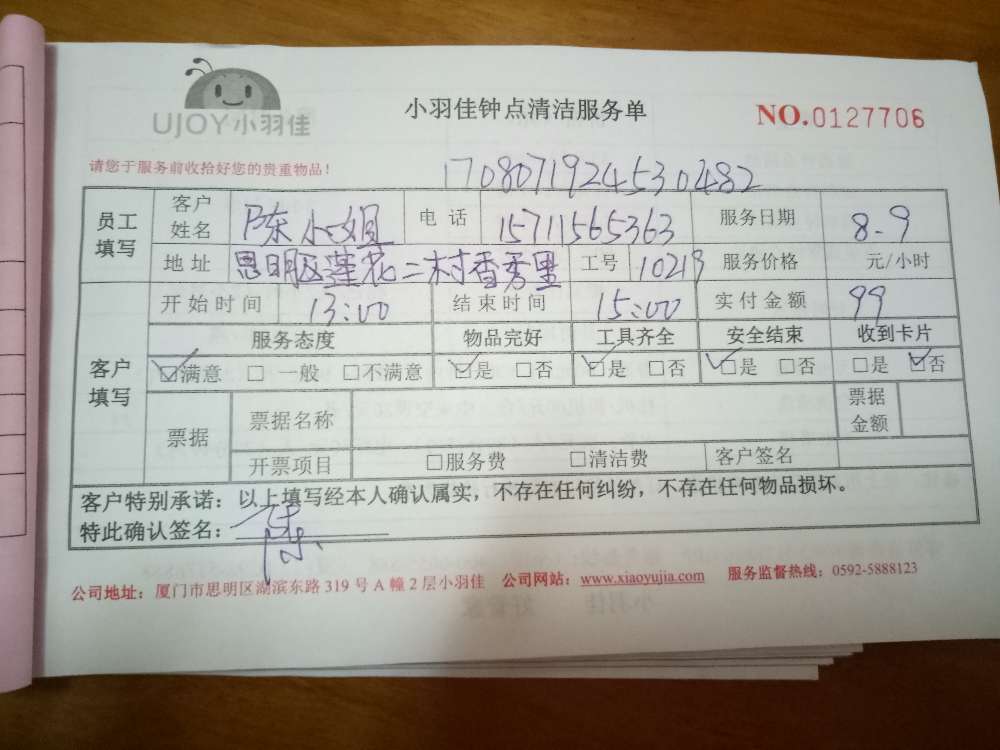 UJOY小羽佳
小羽佳钟点清洁服务单
NO.0127706
请您于服务前收拾好您的贵重物品！
1708071924530482
员工填写 客户姓名 陈小姐 电话 15711565363 服务日期 8.9
地址 思明区莲花二村香秀里 工号 10219 服务价格 元/小时
客户填写 开始时间 13:00 结束时间 15:00 实付金额 99
服务态度 物品完好 工具齐全 安全结束 收到卡片
☑满意 □一般 □不满意 ☑是 □否 ☑是 □否 ☑是 □否 □是 ☑否
票据 票据名称 票据金额
开票项目 □服务费 □清洁费 客户签名
客户特别承诺：以上填写经本人确认属实，不存在任何纠纷，不存在任何物品损坏。
特此确认签名：陈
公司地址：厦门市思明区湖滨东路319号A幢2层小羽佳 公司网站：www.xiaoyujia.com 服务监督热线：0592-5888123